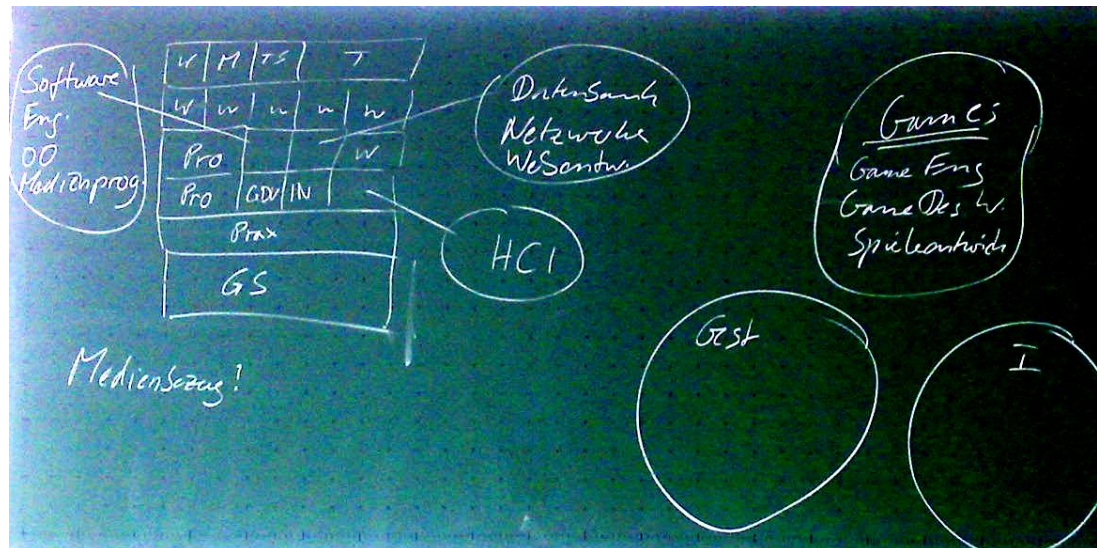 Software
Eng.
OO
Medienprog.
W M TS T
W W W W W
Pro W
Pro GDV IN
Prax
GS
Medienbezug!
Datenbank
Netzwerke
Webentw.
HCI
Games
Game Eng
Game Des W.
Spieleentwick
Gest
I